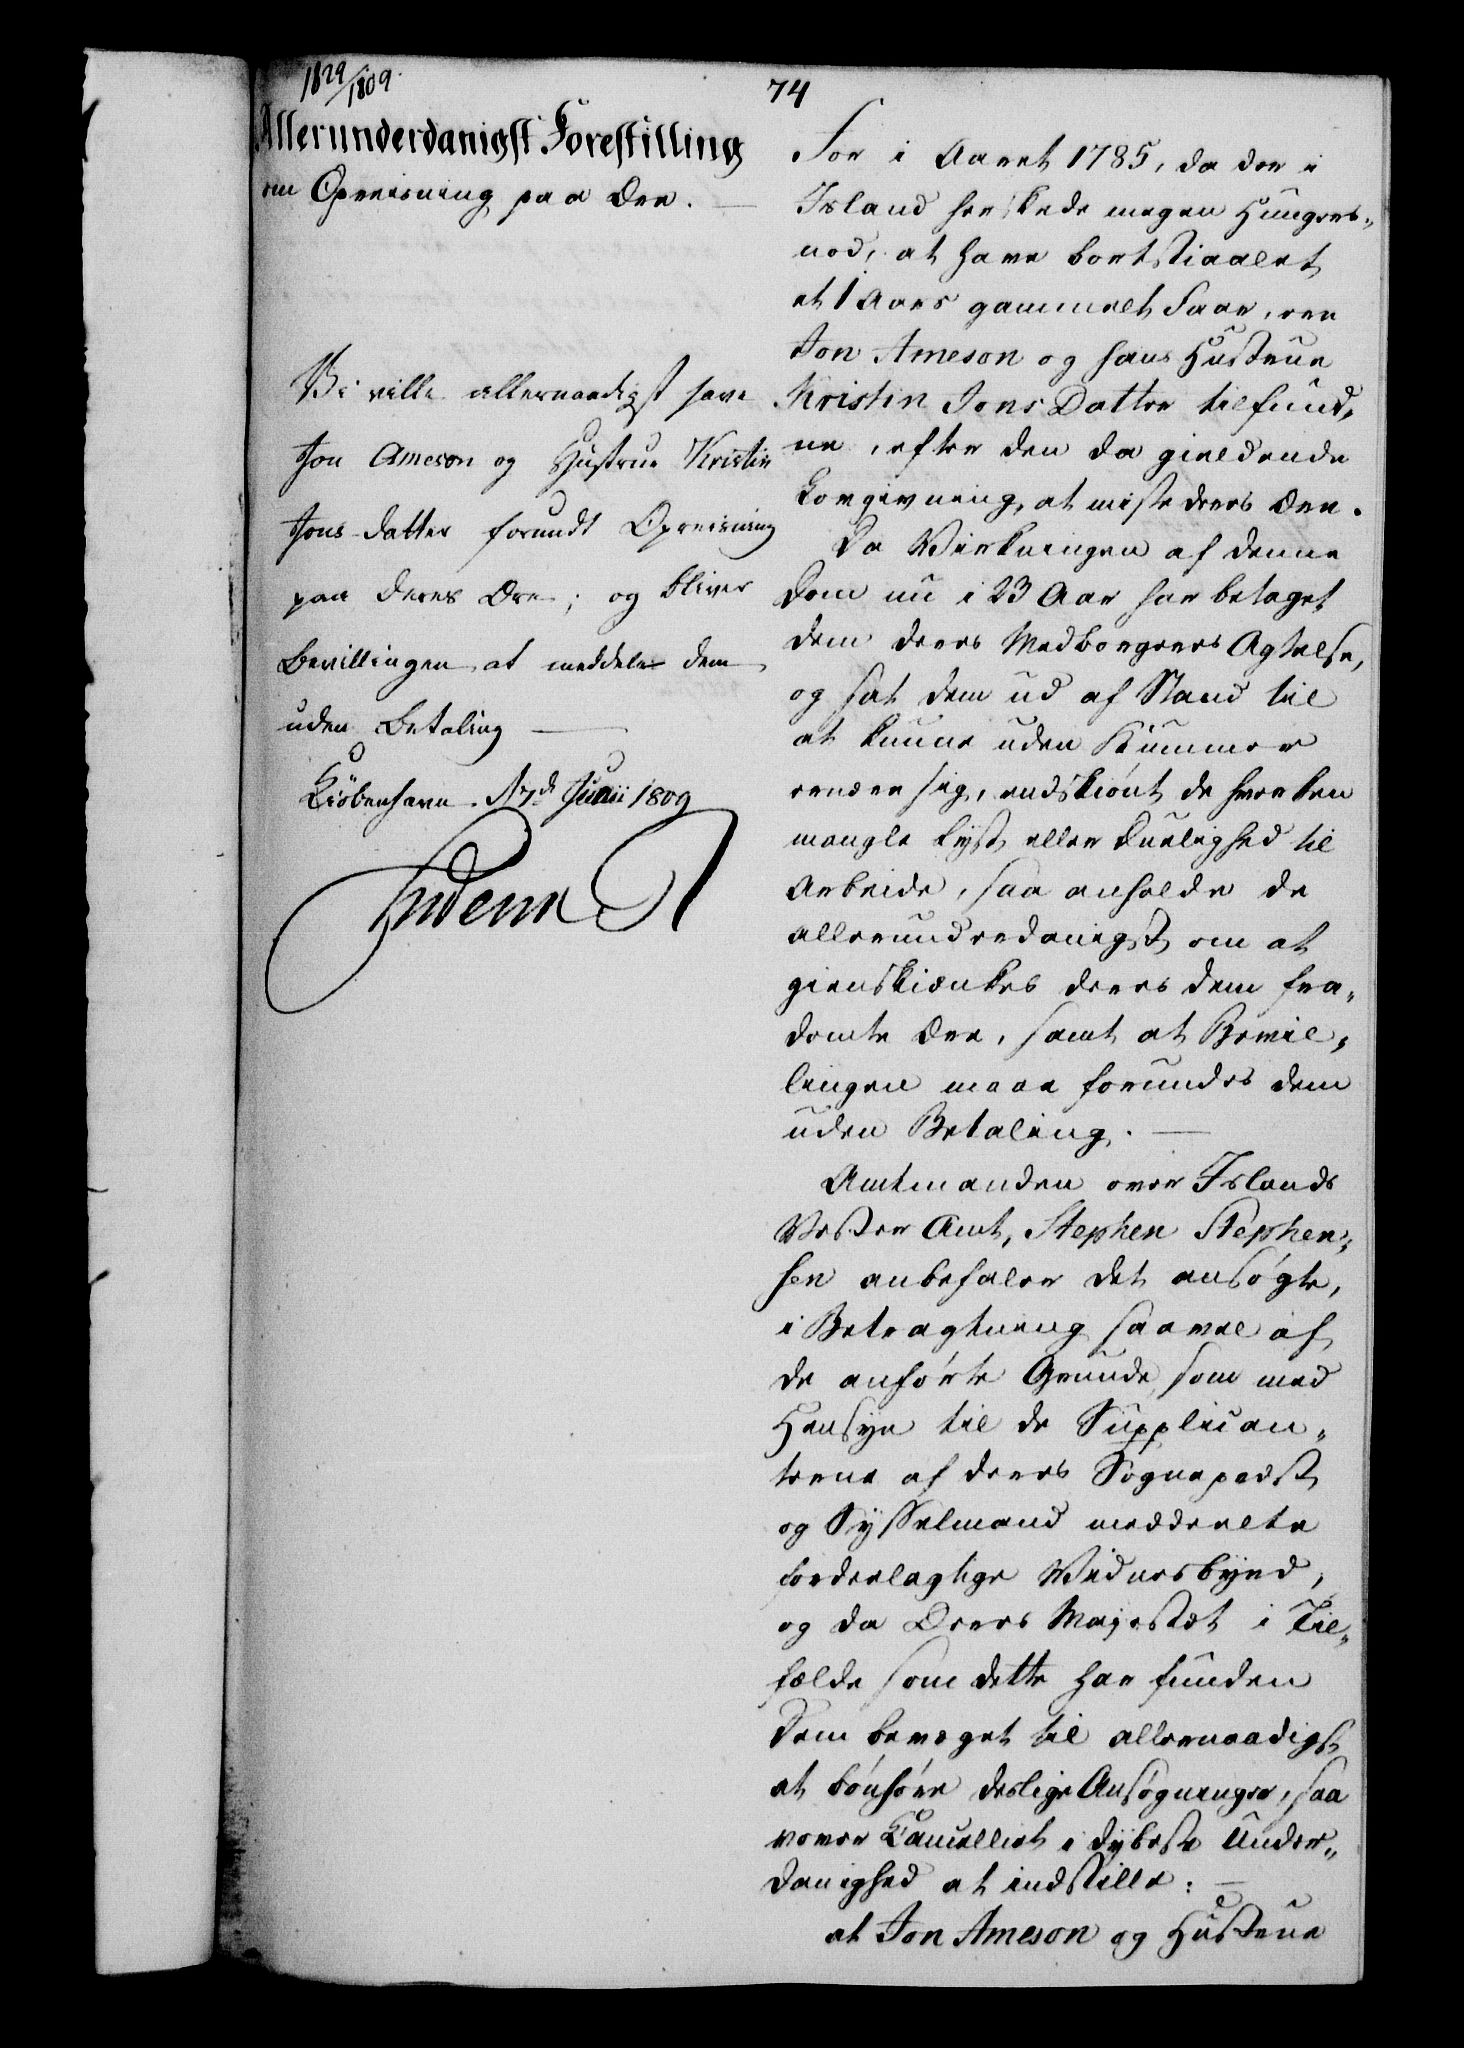 1829/1809.
74
Allerunderdanigst Forestilling
om Opreisning paa Ære. —
Vi ville allernaadigst have
Jon Ameson og Hustrue Kristin
Jons-datter forundt Opreisning
paa deres Ære; og bliver
Bevillingen at meddele dem
uden Betaling —
Kiöbenhavn d. 7d Junii 1809
Frederik R
For i Aaret 1785, da der i
Island herskede megen Hungers„
nød, at have bortstiaalet
et 1 Aars gammelt Faar, ere
Jon Ameson og hans Hustrue
Kristin Jons Datter tilfund„
ne, efter den da gieldende
Lovgivning, at miste deres Ære.
Da Virkningen af denne
Dom nu i 23 Aar har betaget
dem deres Medborgeres Agtelse,
og sat dem ud af Stand til
at kunne uden Kummer
ernære sig, endskiønt de hverken
mangle Lyst eller Duelighed til
Arbeide, saa anholde de
allerunderdanigst om at
gienskiænkes deres dem fra„
dømte Ære, samt at Bevil„
lingen maae forundes dem
uden Betaling. —
Amtmanden over Islands
Vester Amt, Stephen Stephen„
sen anbefaler det ansøgte,
i Betragtning saavel af
de anførte Grunde, som med
Hensyn til de Supplican„
terne af deres Sognepræst
og Sysselmand meddeelte
fordeelagtige Vidnesbyrd,
og da Deres Majestæt i Til„
fælde som dette har funden
Dem bevæget til allernaadigst
at bønhøre deslige Ansøgninger, saa
vover Cancelliet i dybeste Under„
danighed at indstille: —
at Jon Ameson og Hustrue